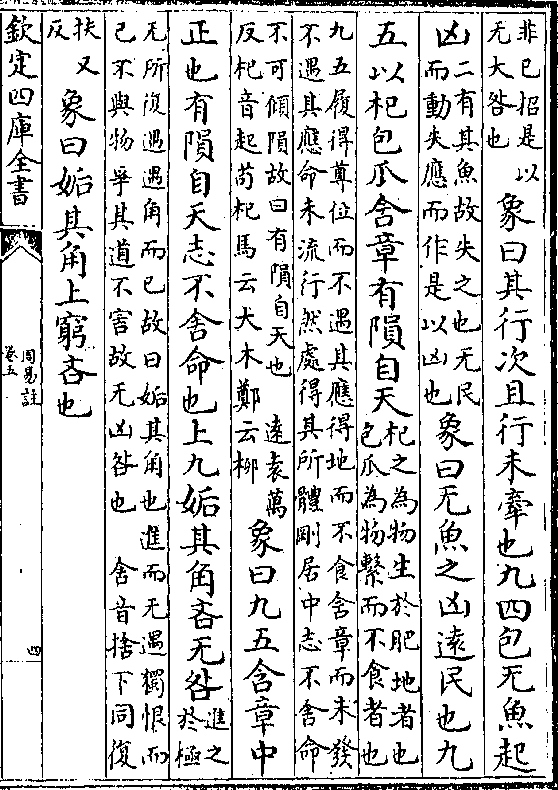 非已招是以
无大咎也
象曰其行次且行未牽也九四包无魚起
凶
二有其魚故失之也无民
而動失應而作是以凶也
象曰无魚之凶遠民也九
五以杞包瓜含章有隕自天
杞之為物生於肥地者也
包瓜為物繫而不食者也
九五履得尊位而不遇其應得地而不食含章而未發
不遇其應命未流行然處得其所體剛居中志不舍命
不可傾隕故曰有隕自天也 遠袁萬
反杞音起苟杞馬云大木鄭云柳
象曰九五含章中
正也有隕自天志不舍命也上九姤其角吝无咎
進之
於極
无所復遇遇角而已故曰姤其角也進而无遇獨恨而
已不與物爭其道不害故无凶咎也 舍音捨下同復
扶又
反
象曰姤其角上窮吝也
欽定四庫全書
周易註
卷五
四